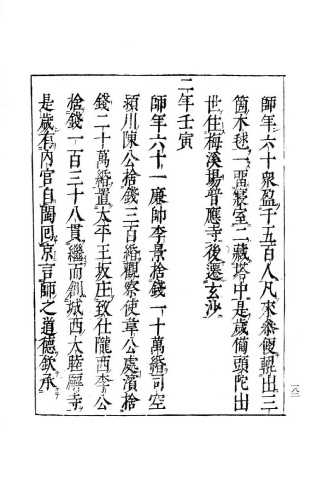 師年六十衆盈千五百人凡來參便輥出三
箇木毬一畱寢室二藏塔中是歲備頭陀出
世住梅溪場普應寺後遷玄沙
二年壬寅
師年六十一廉帥李景捨錢一十萬緡司空
潁川陳公捨錢三百緡觀察使韋公處濱捨
錢二十萬緡置太平王坂庄致仕隴西李公
捨錢一百三十八貫繼而創城西大睦願寺
是歲有內官自閩回京言師之道德欽承